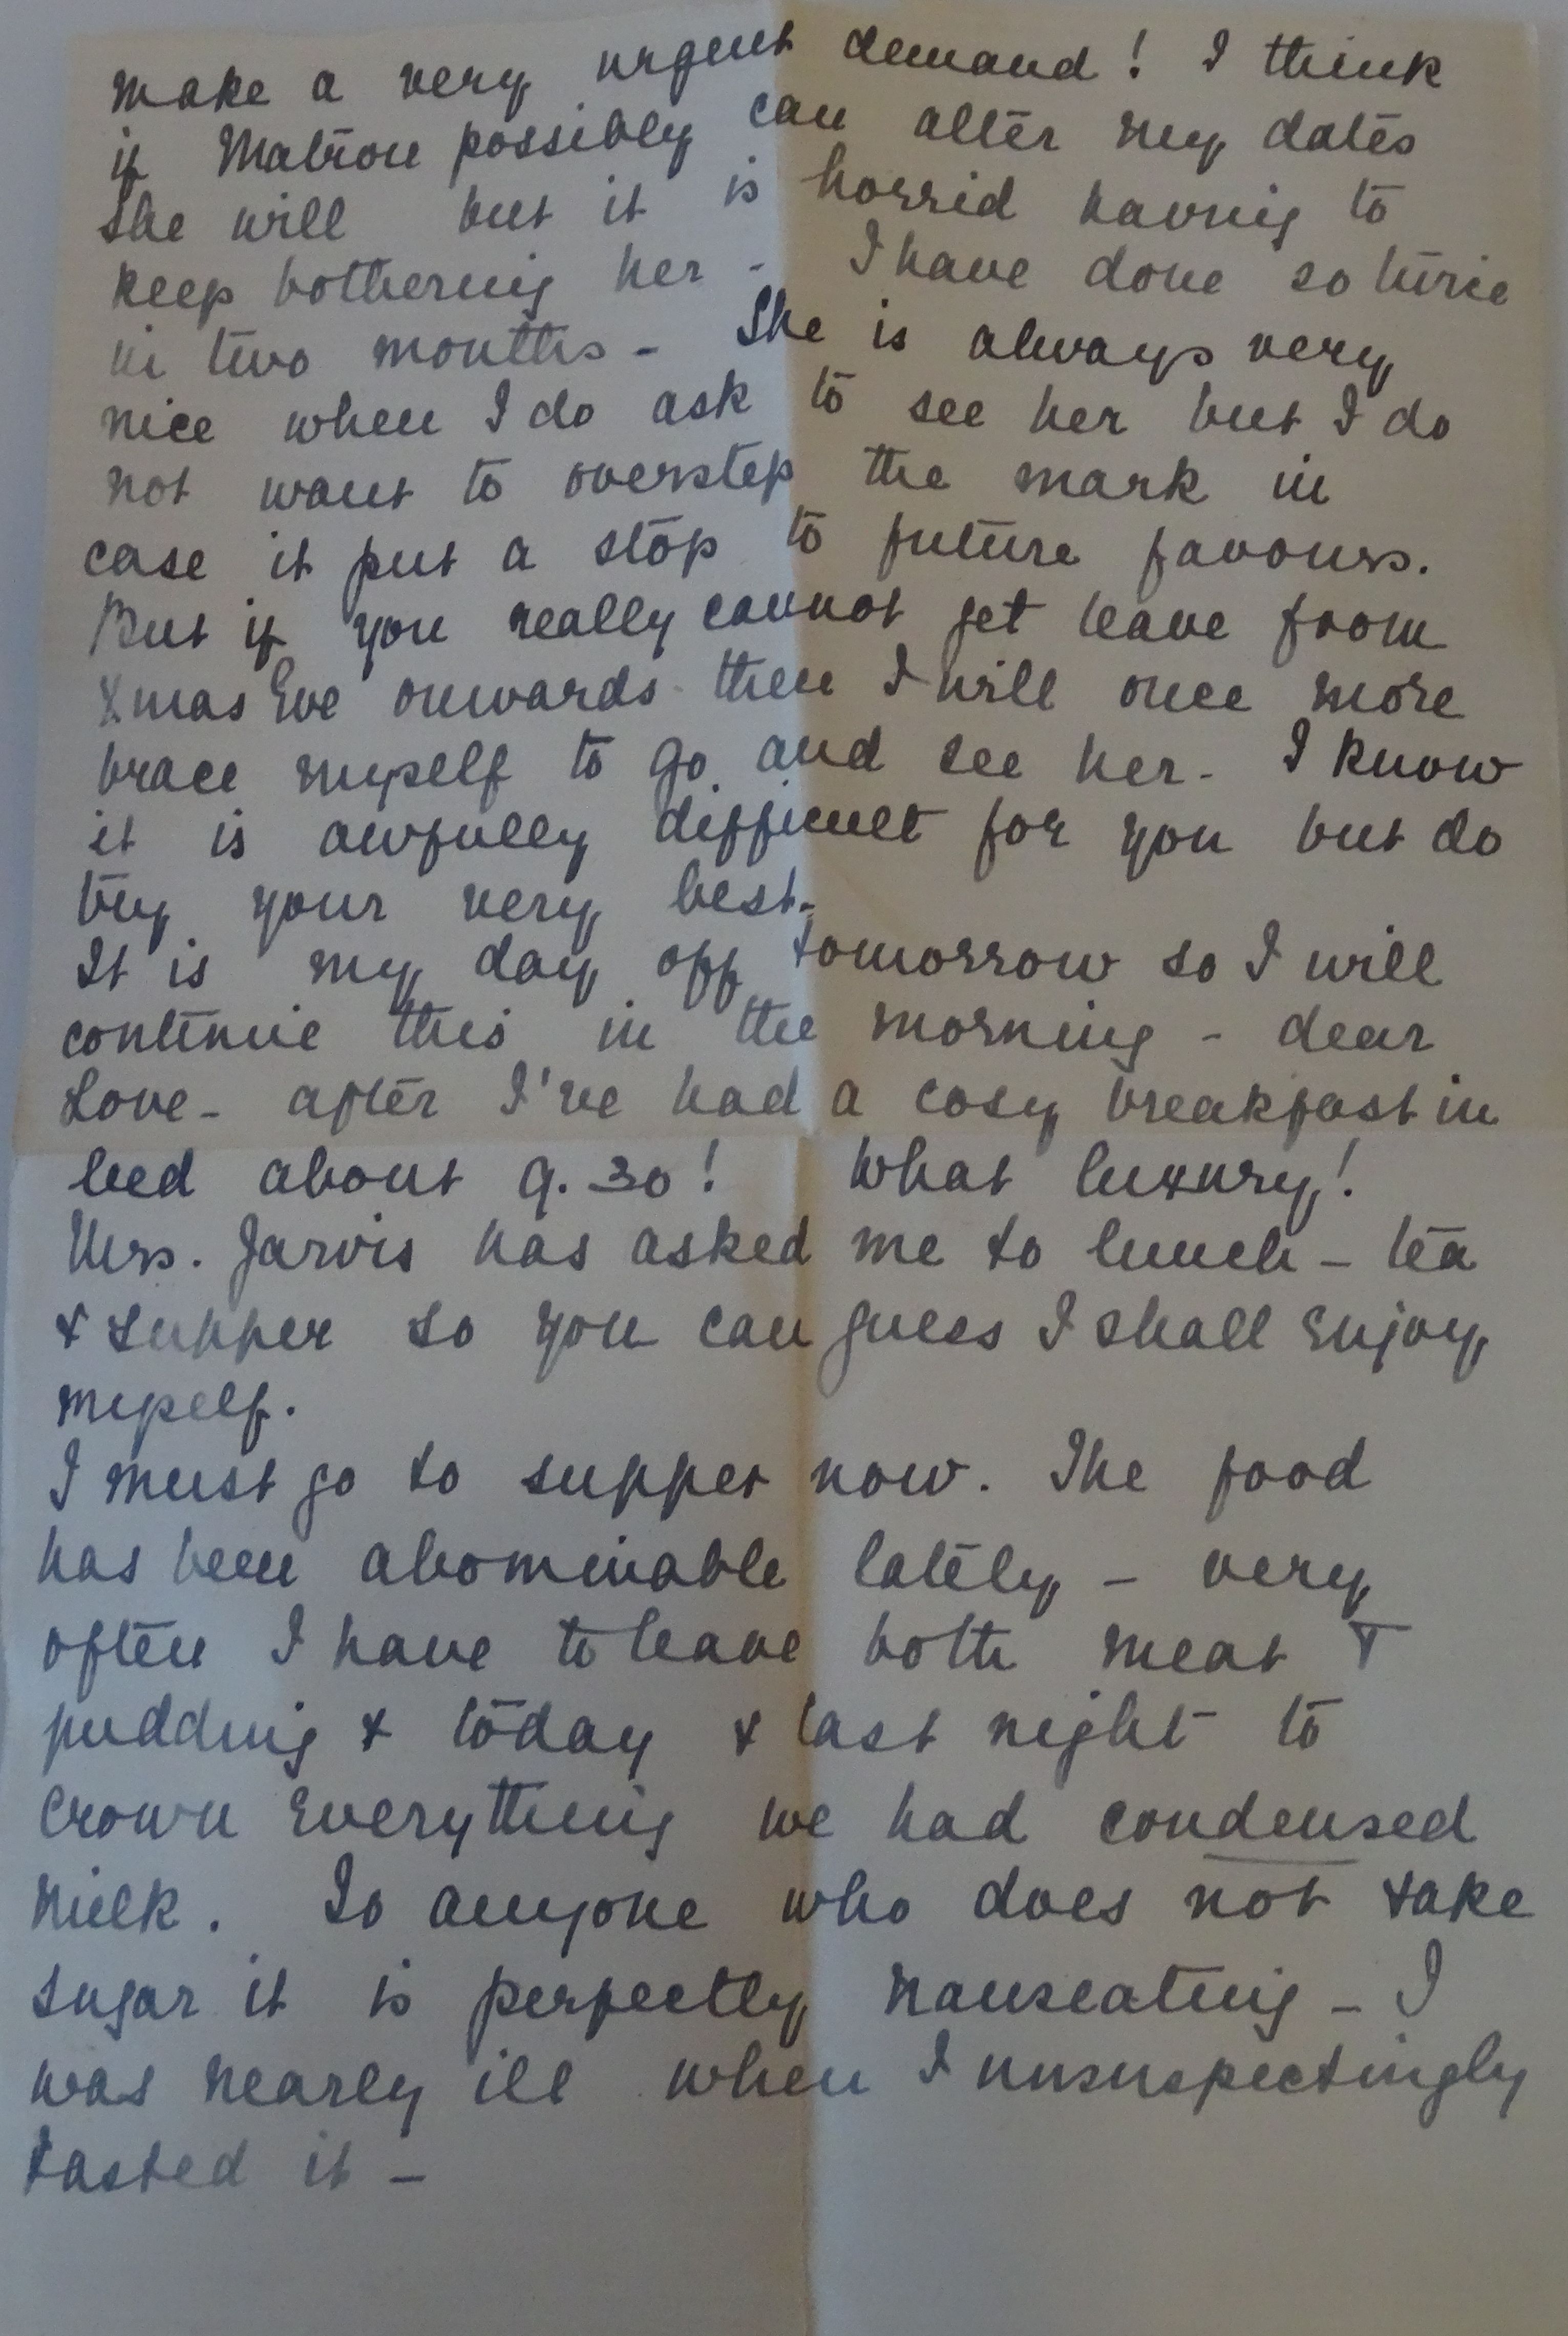 make a very urgent demand! I think
if Matron possibly can alter my dates
she will but it is horrid having to
keep bothering her - I have done so twice
in two months - She is always very
nice when I do ask to see her but I do
not want to overstep the mark in
case it put a stop to future favours.
But if you really cannot get leave from
Xmas Eve onwards then I will once more
brace myself to go and see her - I know
it is awfully difficult for you but do
try your very best -
It is my day off tomorrow so I will
continue this in the morning - dear
Love - after I've had a cosy breakfast in
bed about 9.30! What luxury!
Mrs. Jarvis has asked me to lunch - tea
& supper so you can guess I shall enjoy
myself.
I must go to supper now. The food
has been abominable lately - very
often I have to leave both meat &
pudding & today & last night to
crown everything we had condensed
milk. To anyone who does not take
sugar it is perfectly nauseating - I
was nearly ill when I unsuspectingly
tasted it -